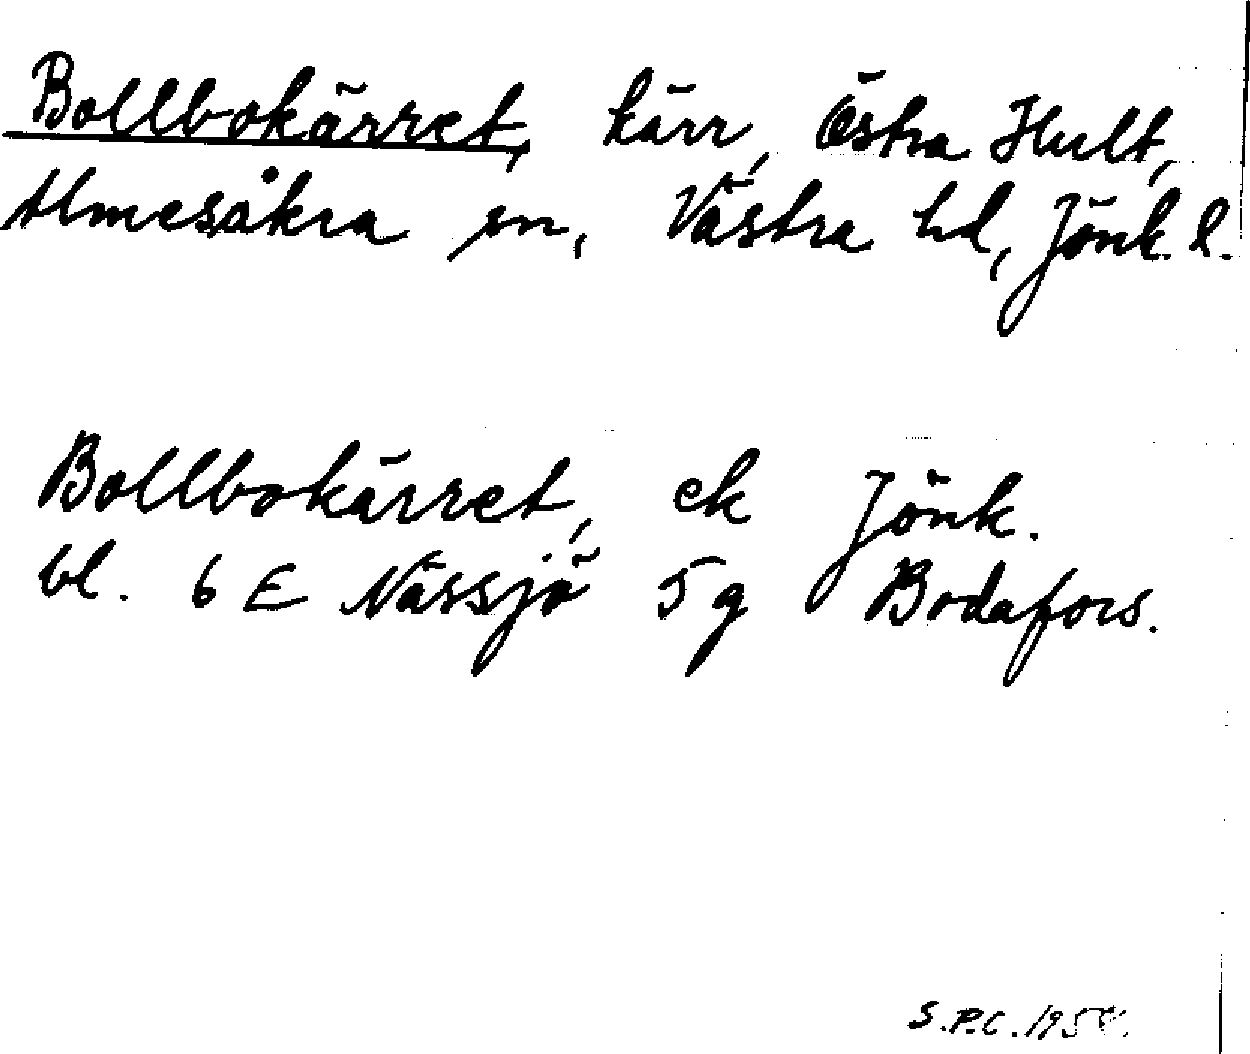 Bollbokärret, kärr, Östra Hult,
Almesåkra sn, Västra hd, Jönk. l.
Bollbokärret, ek Jönk.
bl. 6 E Nässjö 5 g Bodafors.
S.P.C.